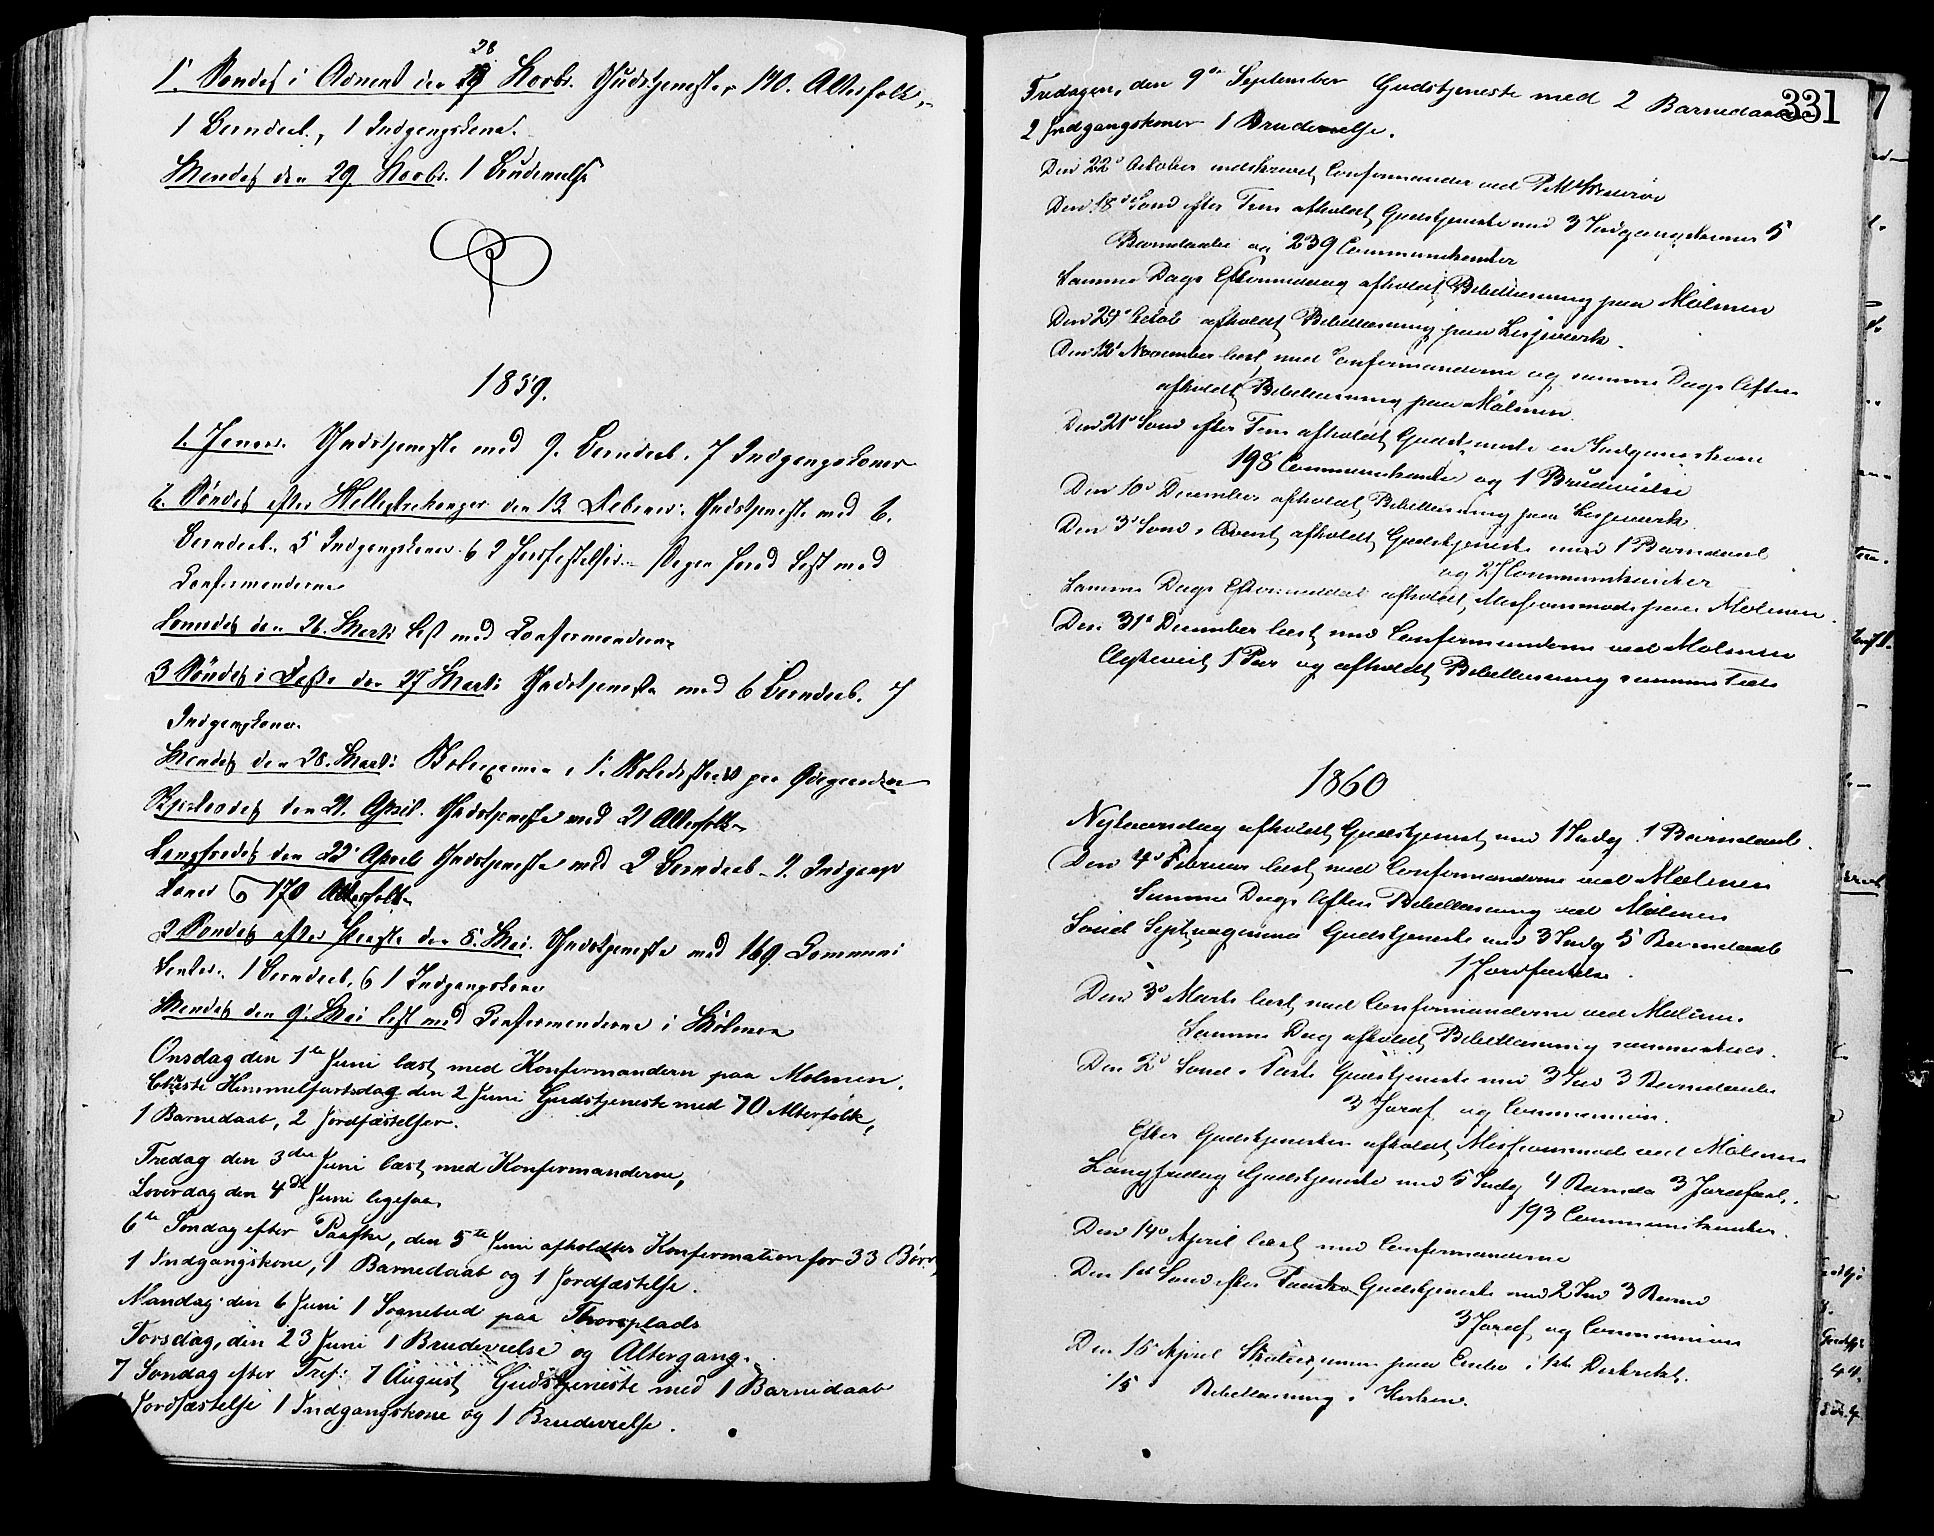 1. Søndag i Advent den 28 Novbr. Gudstjeneste, 140. Alterfolk,
1 Barnedaab, 1 Indgangskone.
Mandag den 29 Novbr. 1 Brudevielse
1859.
1. Januar. Gudstjeneste med 9. Barnedaab. 7 Indgangskoner
6. Søndag efter Helligtrekonger den 13 Februar. Gudstjeneste med 6.
Barnedaab. 5 Indgangskoner. 6 2 Jordfæstelser. Dagen forud læst med
Confirmanderne
Løverdag den 26. Marts læst med Confirmanderne
3 Søndag i Faste den 27 Marts Gudstjeneste med 6 Barnedaab. 7
Indgangskoner.
Mandag den 28. Marts Skolexamen i 1. Skoledistrict paa
Skjærtorsdag den 21. April. Gudstjeneste med 21 Alterfolk
Langfredag den 22 April Gudstjeneste med 2 Barnedaab. 2. Indgangs
koner 170 Alterfolk
2 Søndag efter Paaske den 8. Mai. Gudstjeneste med 169 Communi
kanter. 1 Barnedaab, 1 Indgangskone
Mandag den 9. Mai læst med Confirmanderne i Mølmen
Onsdag den 1te Juni læst med Konfirmandern paa Mølmen.
Christi Himmelfartsdag den 2 Juni Gudstjeneste med 70 Alterfolk,
1 Barnedaab, 2 Jordfæstelser.
Fredag den 3die Juni læst med Konfirmanderne,
Løverdag den 4de Juni ligesaa,
6te Søndag efter Paaske, den 5te Juni afholdtes Konfirmation for 33 Børn,
1 Indgangskone, 1 Barnedaab og 1 Jordfæstelse.
Mandag den 6 Juni 1 Sognebud paa Thorsplads
Torsdag, den 23 Juni 1 Brudevielse og Altergang.
7 Søndag efter Tref: 7 August Gudstjeneste med 1 Barnedaab
Jordfæstelse 1 Indgangskone og 1 Brudevielse.
331
Fredagen, den 9de September Gudstjeneste med 2 Barnedaab
2 Indgangskoner 1 Brudevielse.
Den 22d October indskrevet Confirmander ved
Den 18d Sønd efter Trin afholdt Gudstjeneste med 3 Indgangskoner 5
Barnedaabe og 239 Communikanter
Samme Dags Eftermiddag afholdt Bibellæsning paa Mølmen
Den 29d Octob afholdt Bibellæsning paa Lesjeverk.
Den 12d November læst med Confirmanderne og samme Dags Aften
afholdt Bibellæsning paa Mølmen
Den 21d Sønd efter Trin afholdt Gudstjeneste en Indgangskone
198 Communikanter og 1 Brudevielse
Den 10d December afholdt Bibellæsning paa Lesjeverk.
Den 3d Sønd i Advent afholdt Gudstjeneste med 1 Barnedaab
og 27 Communikanter
Samme Dags Eftermiddag afholdt Missionsmøde paa Mølmen.
Den 31d December læst med Confirmanderne ved Mølmen
Ægteviet 1 Par og afholdt Bibellæsning samme Sted
1860
Nytaarsdag afholdt Gudstjenest med 1 Indg 1 Barnedaab.
Den 4d Februar læst med Confirmanderne ved Mølmen
Samme Dags Aften Bibellæsning ved Mølmen
Sønd Septuagesima Gudstjeneste med 3 Indg 5 Barnedaab
1 Jordfæstelse.
Den 3d Marts læst med Confirmanderne ved Mølmen.
Samme Dag afholdt Bibellæsning sammesteds.
Den 2d Sønd i Faste Gudstjeneste med 3 Ind 3 Barnedaabe
3 Jordf og Communion.
Efter Gudstjenesten afholdt Missionsmøde ved Mølmen
Langfredag Gudstjeneste med 5 Indg 4 Barnda 3 Jordfæst.
193 Communikanter.
Den 14d April læst med Confirmanderne
Den 1st Sønd efter Paaske Gudstjeneste med 2 Ind 3 Barnd
3 Jordf og Communion
Den 16 April Skoleexamen paa Enebo i 1ste Distrikt.
15 Bibellæsning i Kirken.